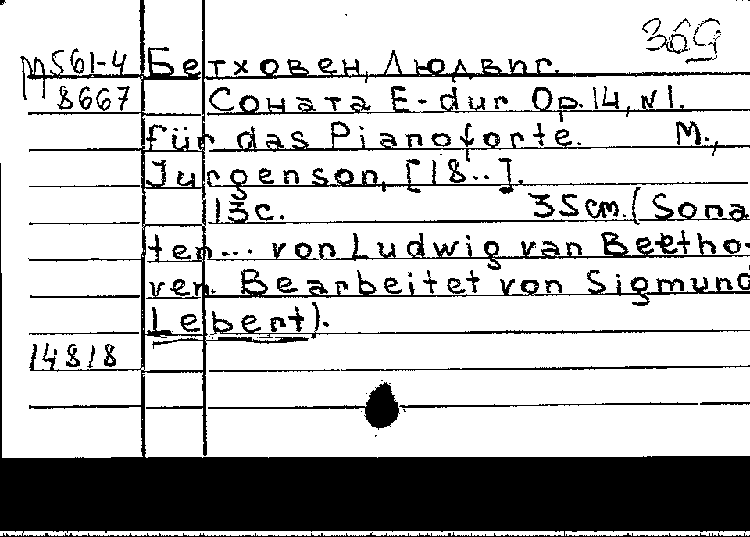 369
М561-4 Бетховен, Людвиг.
8667 Соната E-dur Op.14, N1.
für das Pianoforte. М.,
Jurgenson, [18..].
13с. 35см. (Sona
ten... von Ludwig van Beetho-
ven. Bearbeitet von Sigmund
Lebert).
14818